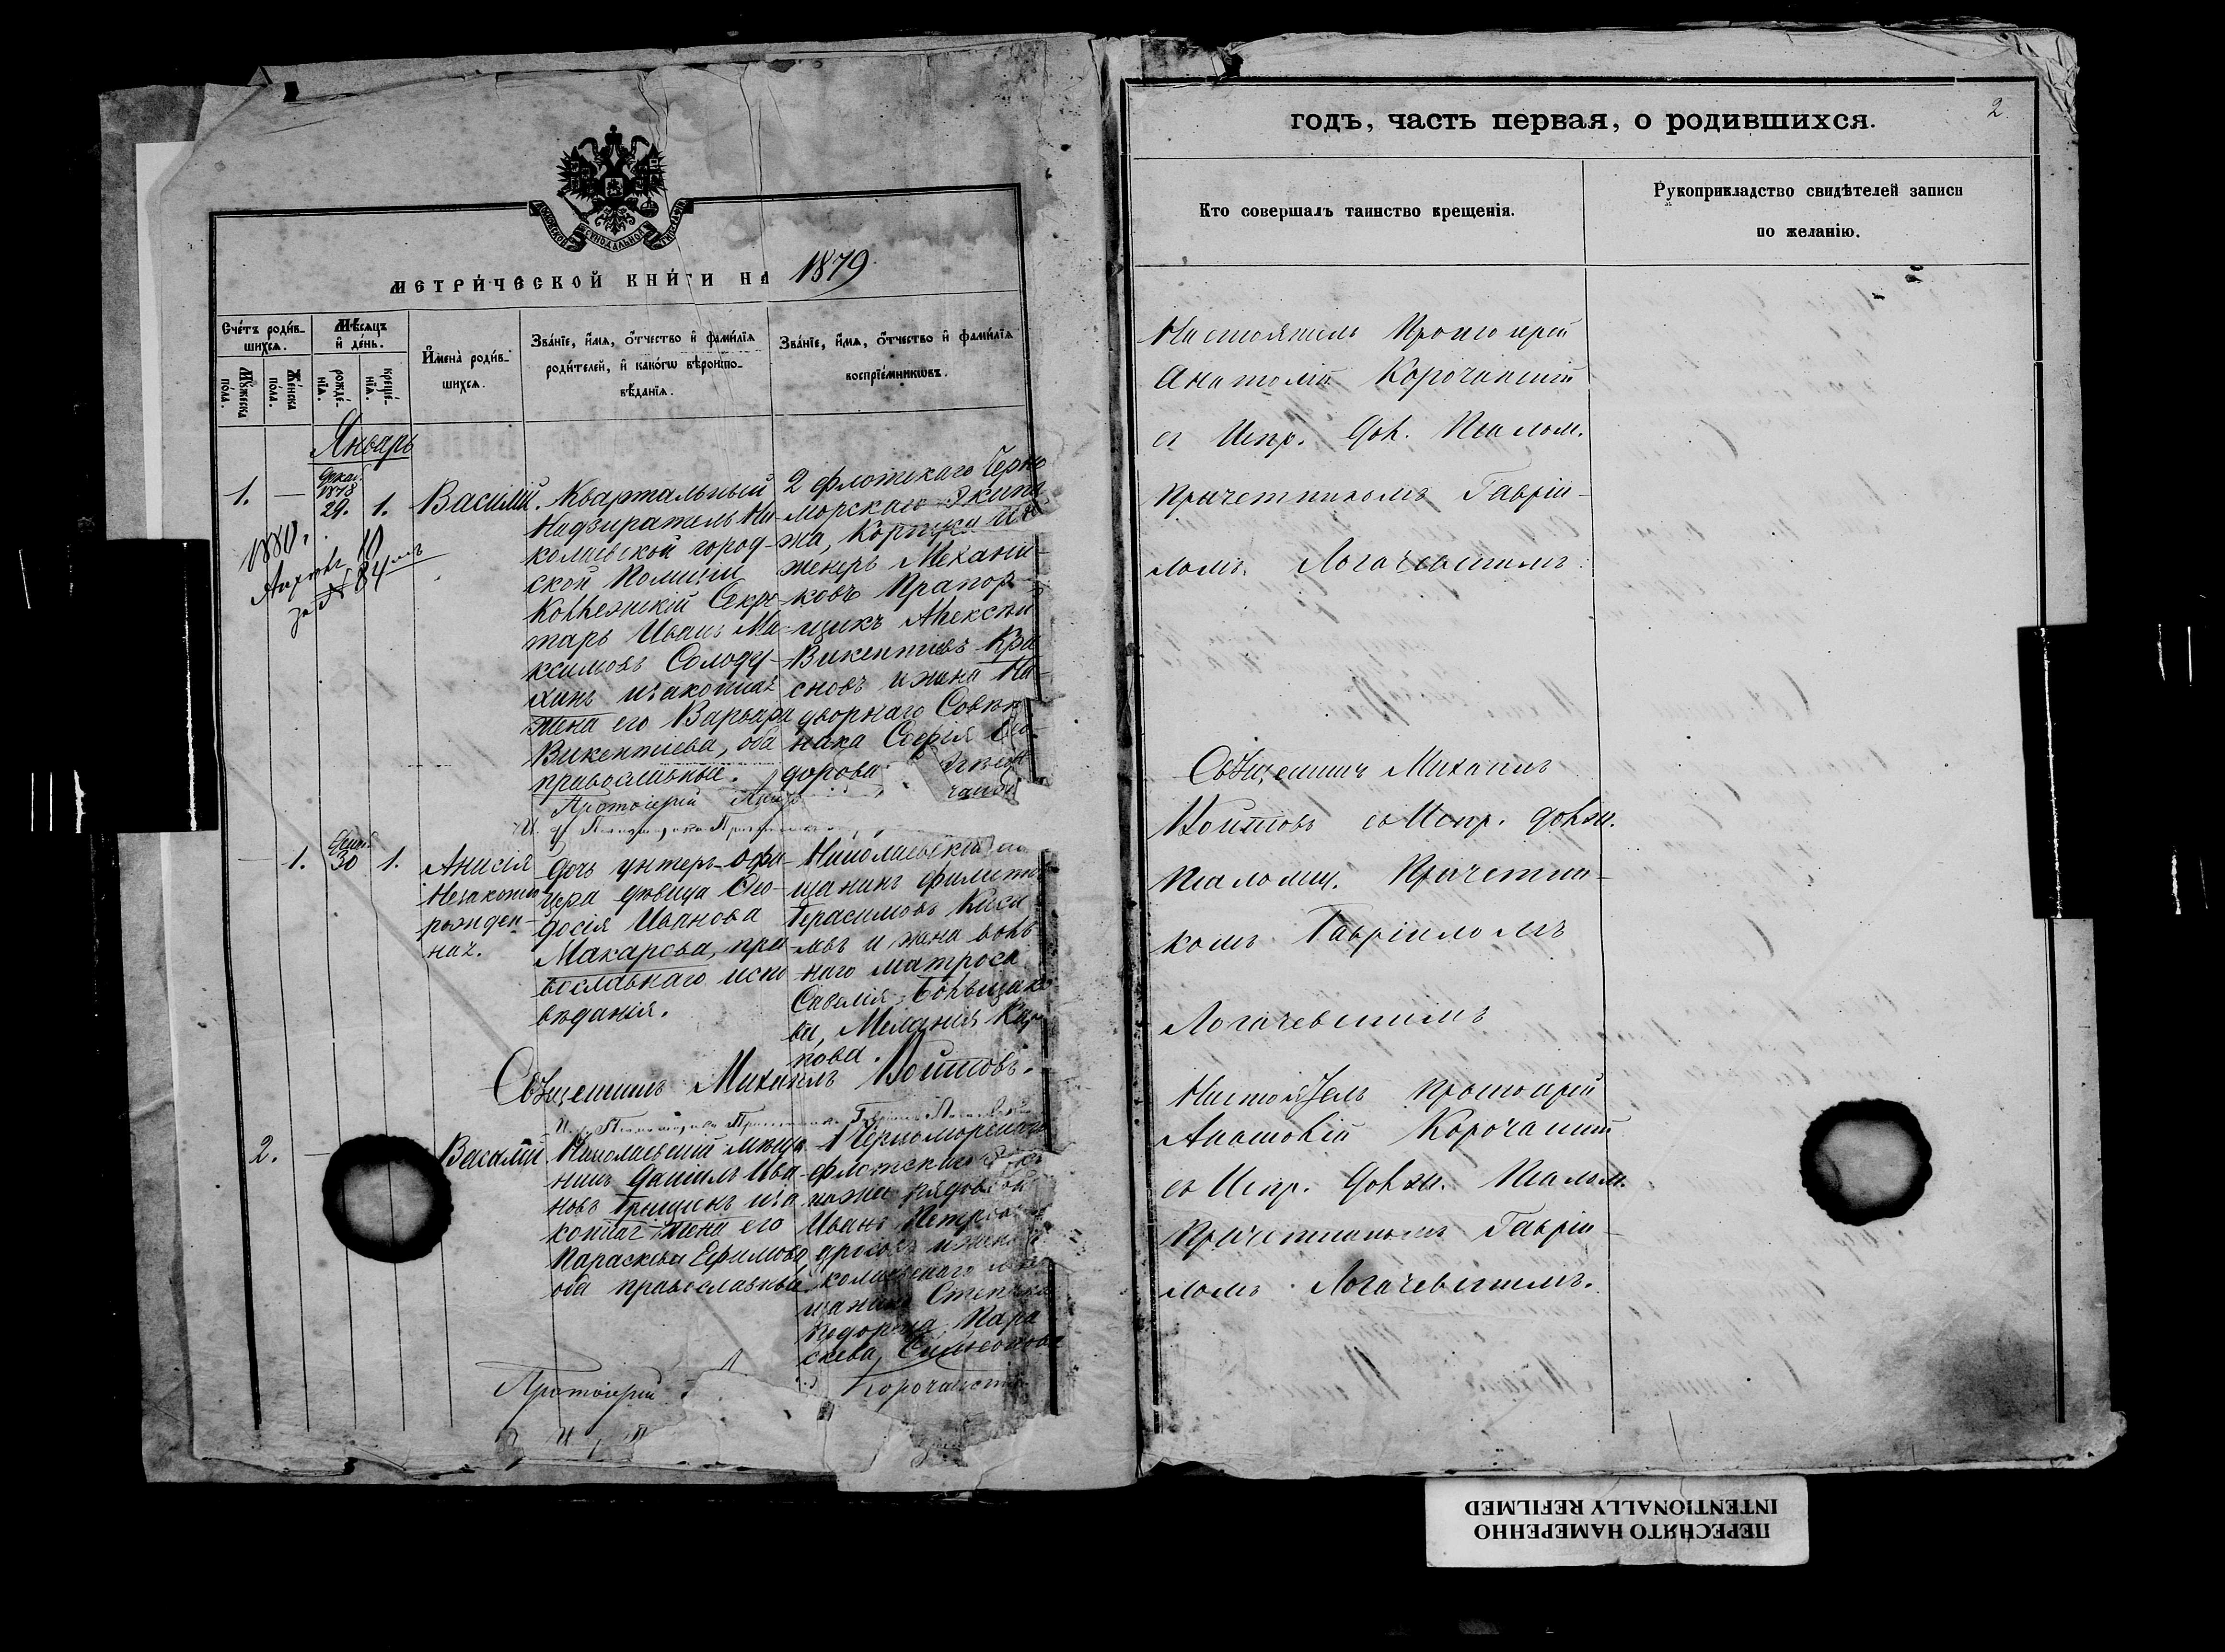 МОСКОВСКОЙ СУНОДАЛЬНОЙ ТИПОГРАФІИ
МЕТРИЧЕСКОЙ КНИГИ НА 1879.
Счетъ родив-
шихся.
Мѣсяцъ
и день.
Имена родив-
шихся.
Званіе, имя, отчество и фамилія
родителей, и какогω вѣроиспо-
вѣданія.
Званіе, имя, отчество и фамилія
воспріемниковъ.
Мужеска
пола.
Женска
пола.
рожде-
нія.
креще-
нія.
Январь
1. — Декаб. 1878 29. 1. Василій.
1880.
за № 84
Квартальный
Надзиратель Ни-
колаевской город-
ской Полиціи
Коллежскій Секре-
тарь Иванъ Ма-
ксимовъ Солоду-
хинъ и законная
жена его Варвара
Викентіева, оба
православные.
2 флотскаго Черно
морскаго Экипа
жа, Корпуса Ин
женеръ Механи-
ковъ Прапор-
щикъ Алексѣй
Викентіевъ
сновъ и жена На-
дворнаго Совѣт
ника Софія Ѳео-
дорова
Протоіерей
— 1. 30 1. Анисія
Незаконно
рожден-
ная.
Дочь унтеръ-офи-
цера дѣвица Ѳео-
досія Иванова
Макарова, пра-
вославнаго испо-
вѣданія.
Николаевскій
щанинъ Филиппъ
Герасимовъ
и жена
наго матроса
Савелія
ва, Меланія Кар
пова.
Священникъ Михаилъ Войтовъ.
2. — Василій.
Николаевскій мѣща-
нинъ Даніилъ Ива-
новъ Грицинъ и за-
конная жена его
Параскева Ефимова
оба православные.
1 Черноморскаго
флотскаго Эки
пажа рядовой
Иванъ Петровъ
и жена Ни
колаевскаго мѣ
щанина Степана
Параскева Симеонова
Протоіерей Корочанскій
годъ, часть первая, о родившихся.
2
Кто совершалъ таинство крещенія.
Рукоприкладство свидѣтелей записи
по желанію.
Настоятель Протоіерей
Анатолій Корочанскій
съ Испр. Дол. Псалом.
Причетникомъ Гавріи-
ломъ Логачевскимъ
Священникъ Михаилъ
Войтовъ съ Испр. Должн.
Псаломщ. Причетни-
комъ Гавріиломъ
Логачевскимъ
Настоятель Протоіерей
Анатолій Корочанскій
съ Испр. Должн. Псалом.
Причетникомъ Гавріи-
ломъ Логачевскимъ.
ПЕРЕСНЯТО НАМЕРЕННО
INTENTIONALLY REFILMED